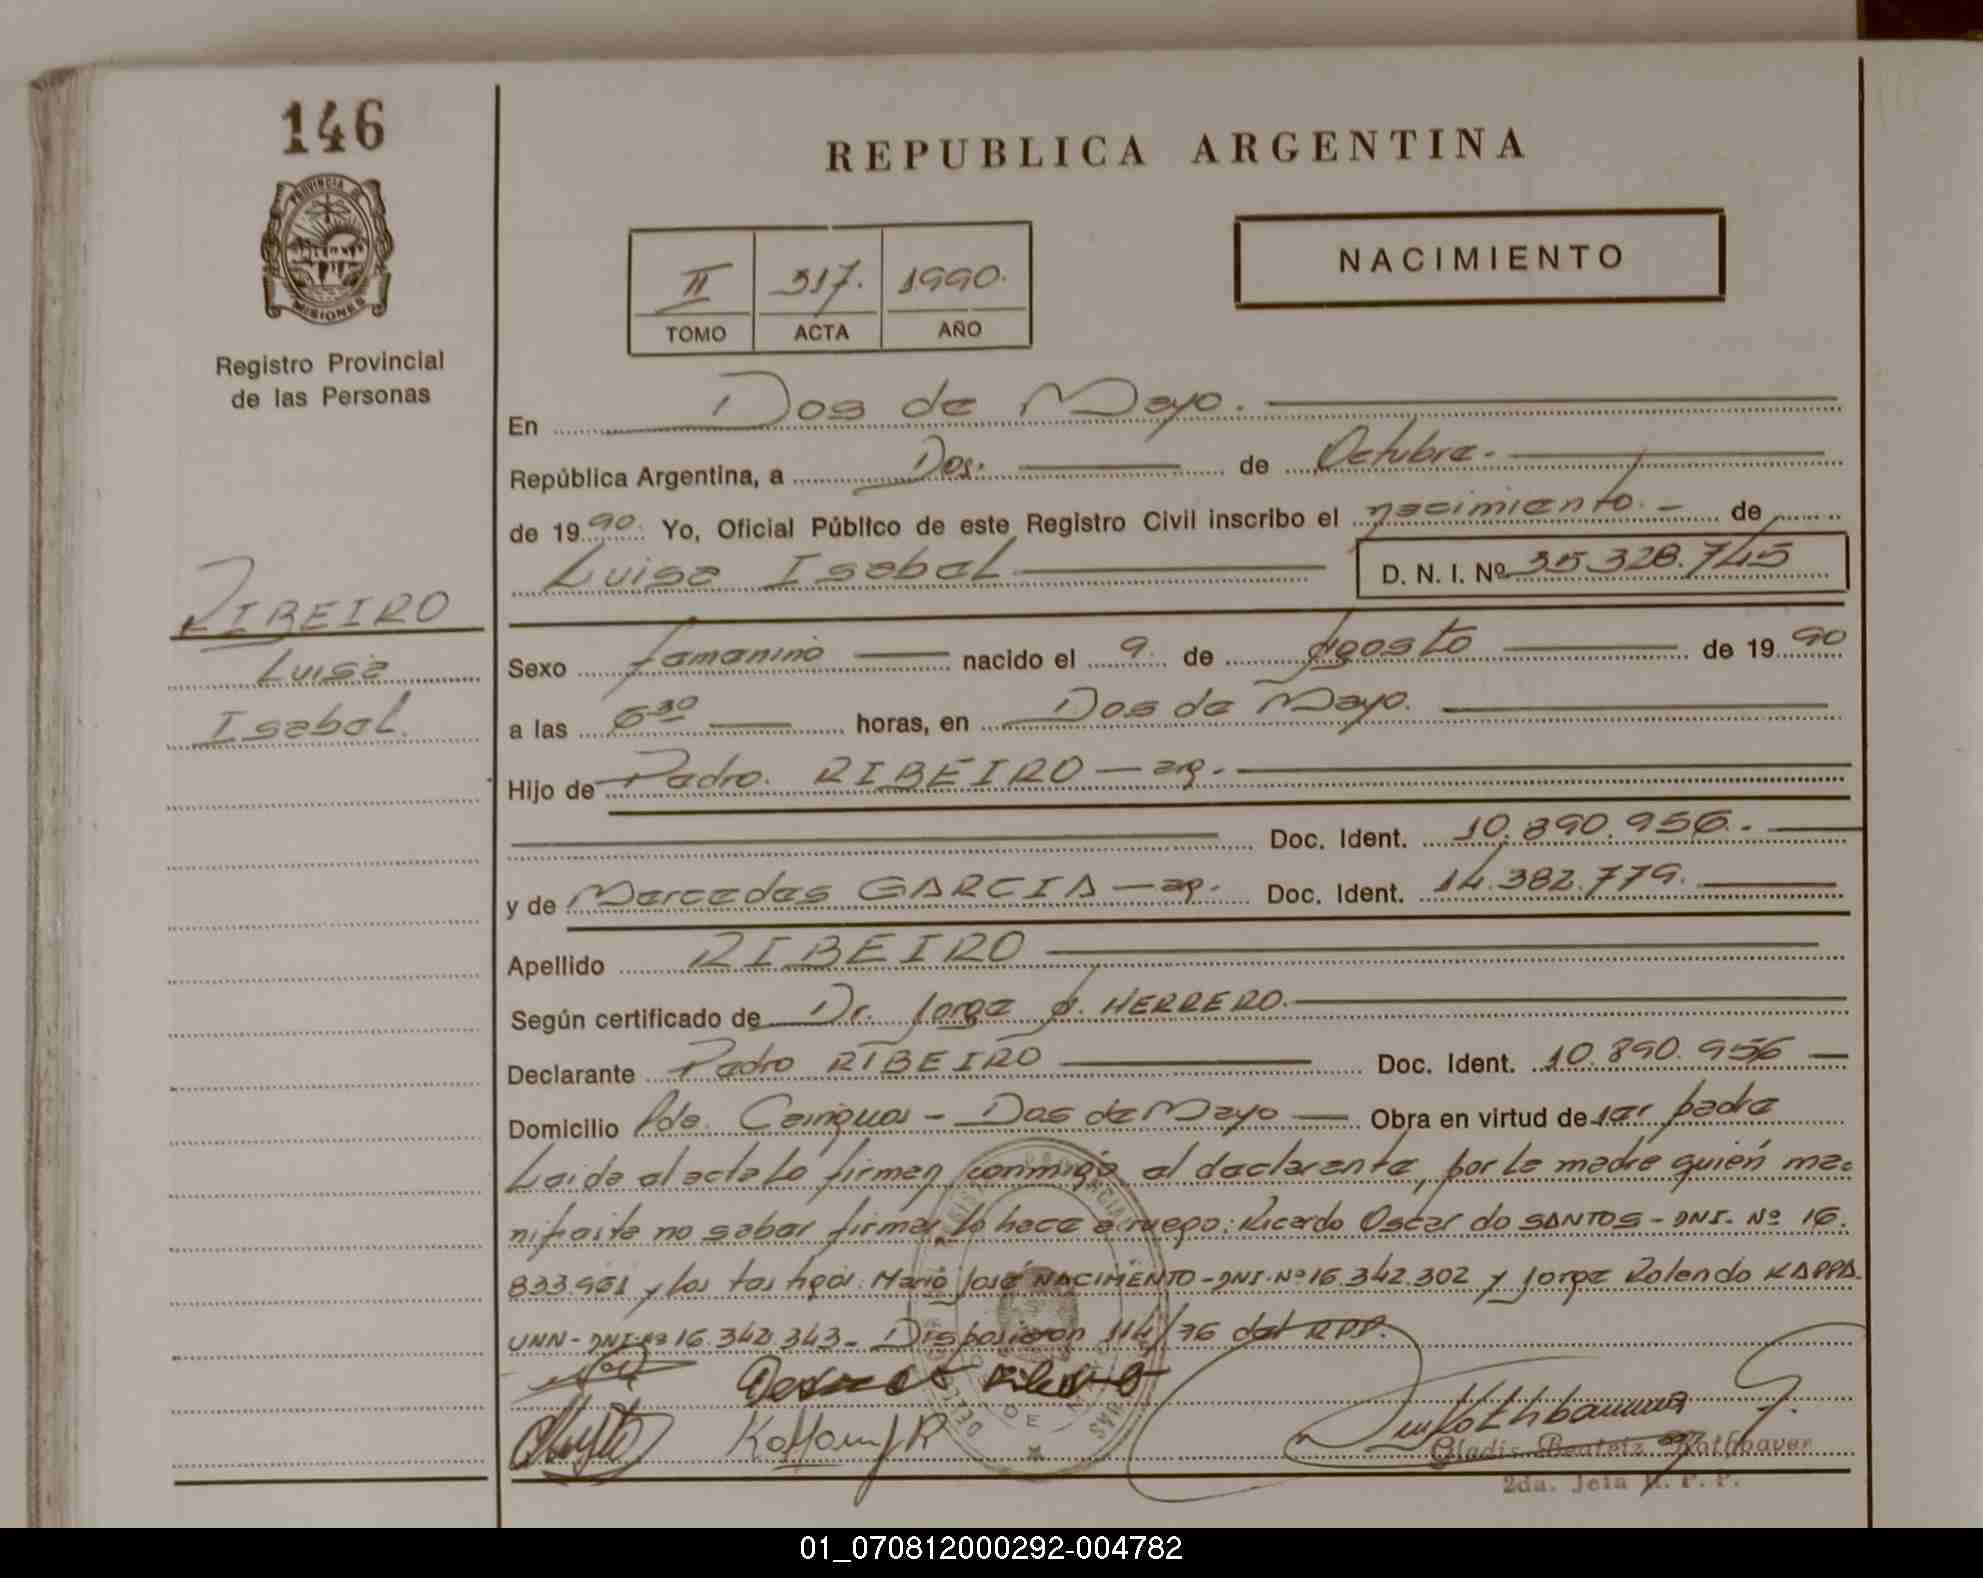 146
PROVINCIA DE
MISIONES
Registro Provincial
de las Personas
RIBEIRO
Luisa
Isabel.
REPUBLICA ARGENTINA
NACIMIENTO
II 317. 1990.
TOMO ACTA AÑO
En Dos de Mayo.
República Argentina, a Dos. de Octubre.
de 1990. Yo, Oficial Público de este Registro Civil inscribo el nacimiento. de
Luisa Isabel D. N. I. Nº 35.328.745
Sexo femenino nacido el 9. de Agosto de 1990
a las 6 30 horas, en Dos de Mayo.
Hijo de Pedro. RIBEIRO - arg.
Doc. Ident. 10.890.956.
y de Mercedes GARCIA - arg. Doc. Ident. 14.382.779.
Apellido RIBEIRO
Según certificado de Dr. Jorge A. HERRERO.
Declarante Pedro RIBEIRO Doc. Ident. 10.890.956
Domicilio Pde. Cainguas - Dos de Mayo Obra en virtud de ser padre
Leída el acta la firman conmigo el declarante, por la madre quién ma-
nifiesta no saber firmar lo hace a ruego: Ricardo Oscar do SANTOS - DNI. Nº 16.
833.961 y los testigos: Mario José NACIMENTO - DNI. Nº 16.342.302 y Jorge Rolando KAPPA.
UNN - DNI Nº 16.342.343 - Disposición 114/76 del RPP.
Gladis Beatriz Rothbaver
2da. Jefa R. P. P.
01_070812000292-004782